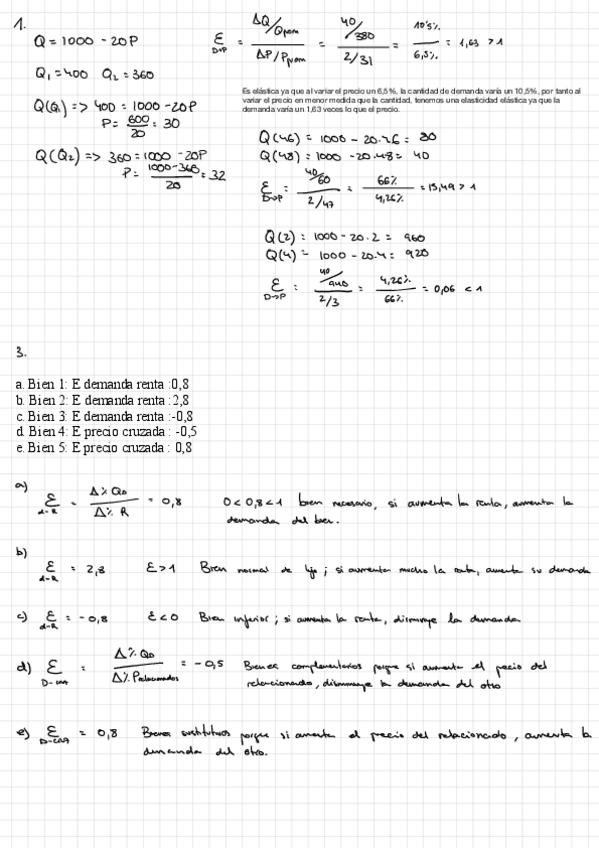 1.
Q = 1000 - 20P
Q₁ = 400 Q₂ = 360
Q(Q₁) => 400 = 1000 - 20P
P = 600/20 = 30
Q(Q₂) => 360 = 1000 - 20P
P = 1000-360/20 = 32
Ɛ D→P = ΔQ/Qprom / ΔP/Pprom = 40/380 / 2/31 = 10'5% / 6,5% = 1,63 > 1
Es elástica ya que al variar el precio un 6,5%, la cantidad de demanda varía un 10,5%, por tanto al
variar el precio en menor medida que la cantidad, tenemos una elasticidad elástica ya que la
demanda varía un 1,63 veces lo que el precio.
Q(46) = 1000 - 20·26 = 80
Q(48) = 1000 - 20·48 = 40
Ɛ D→P = 40/60 / 2/47 = 66% / 4,26% = 15,49 > 1
Q(2) = 1000 - 20·2 = 960
Q(4) = 1000 - 20·4 = 920
Ɛ D→P = 40/940 / 2/3 = 4,26% / 66% = 0,06 < 1
3.
a. Bien 1: E demanda renta :0,8
b. Bien 2: E demanda renta :2,8
c. Bien 3: E demanda renta :-0,8
d. Bien 4: E precio cruzada : -0,5
e. Bien 5: E precio cruzada : 0,8
a) Ɛ d-R = Δ% QD / Δ% R = 0,8 0 < 0,8 < 1 bien necesario, si aumenta la renta, aumenta la
demanda del bien.
b) Ɛ d-R = 2,8 Ɛ > 1 Bien normal de lujo ; si aumenta mucho la renta, aumenta su demanda
c) Ɛ d-R = -0,8 Ɛ < 0 Bien inferior ; si aumenta la renta, disminuye la demanda
d) Ɛ = Δ% QD / Δ% Prelacionados = -0,5 Bienes complementarios porque si aumenta el precio del
relacionado, disminuye la demanda del otro
e) Ɛ = 0,8 Bienes sustitutivos porque si aumenta el precio del relacionado, aumenta la
demanda del otro.